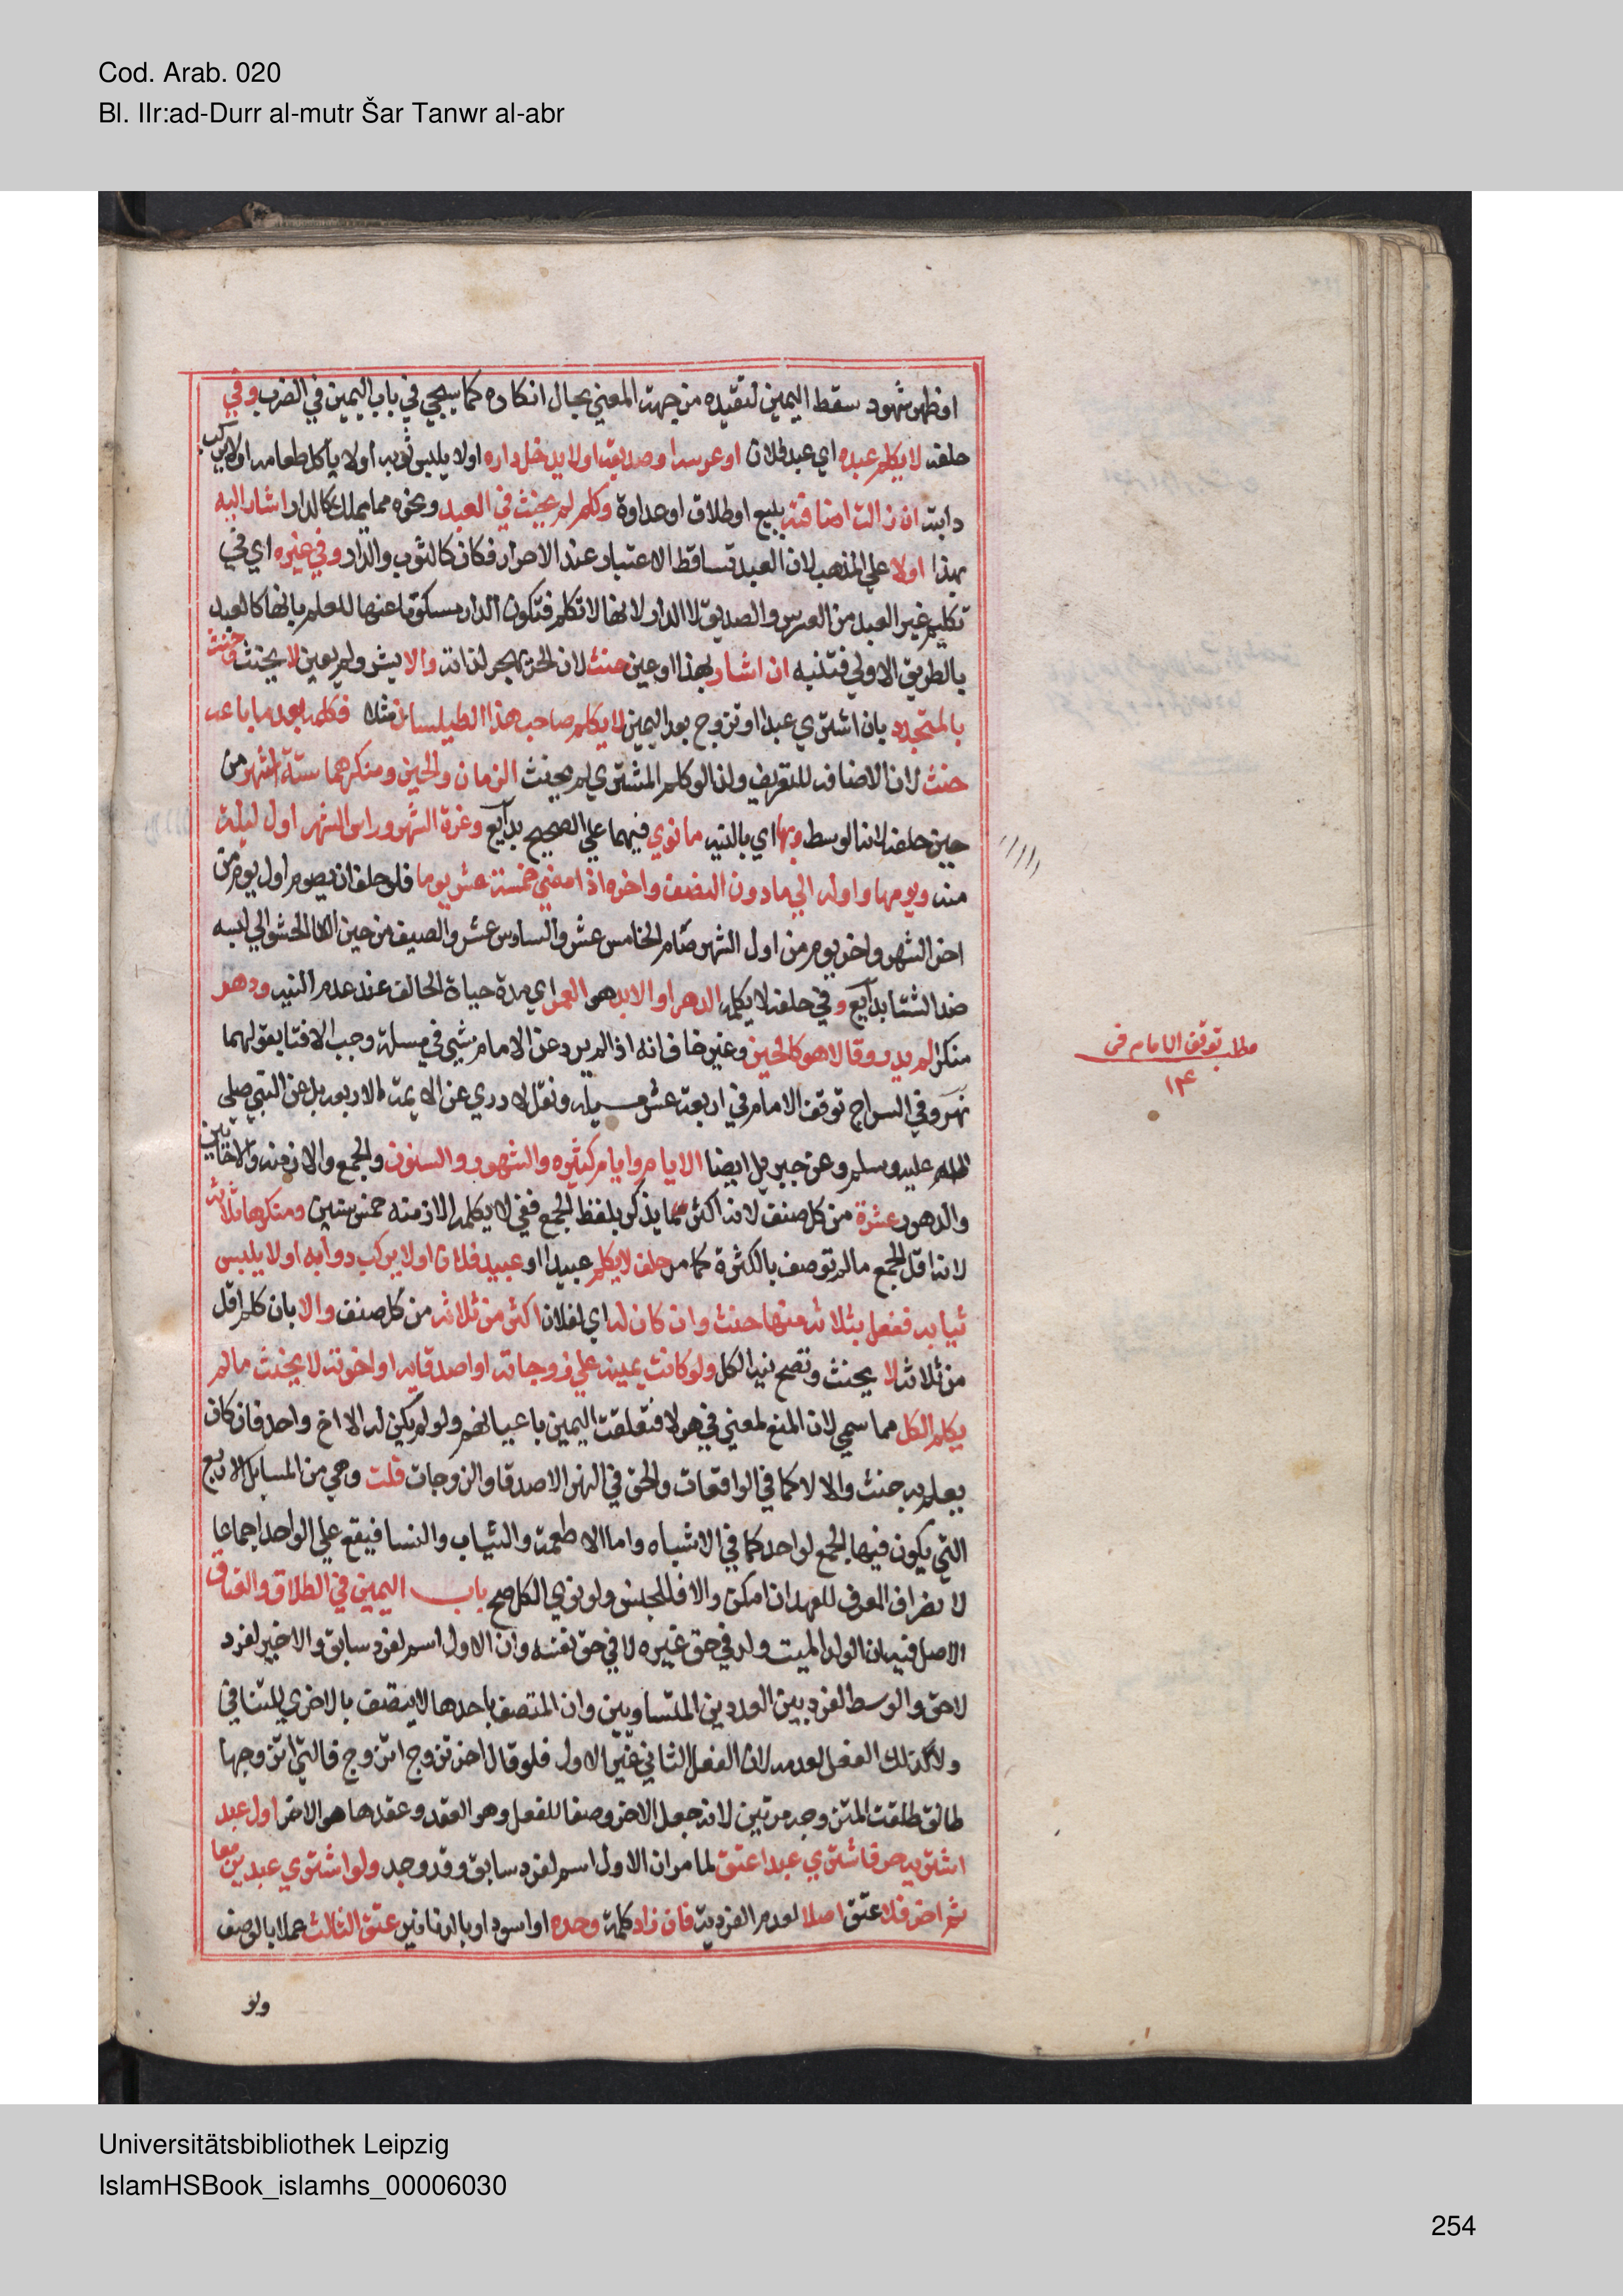 Cod. Arab. 020
Bl. IIr:ad-Durr al-mutr Šar Tanwr al-abr
او ظهر شهود سقط اليمين لتقيده من جهة المعني بحال انكاره كما سيجي في باب اليمين في الضرب وفي
حلفه لا يكلم عبده اي عبد فلان او عرسه او صديقه او لا يدخل داره او لا يلبس ثوبه او لا ياكل طعامه او لا يركب
دابته ان زالت اضافته ببيع او طلاق او عداوة وكلم لم يحنث في العبد ونحوه مما يملك كالدار اشار اليه
بهذا اولا علي المذهب لان العبد ساقط الاعتبار عند الاحرار فكان كالثوب والدار وفي غيره اي في
تكليم غير العبد من العرس والصديق لا الدار لانها لا تكلم فتكون الدار مسكوتا عنها للعلم بانها كالعبد
بالطريق الاولي فتنبه ان اشار بهذا او عين حنث لان الحر يهجر لذاته والا يشر ولم يعين لا يحنث وحنث
بالمتجدد بان اشتري عبدا او تزوج بعد اليمين لا يكلم صاحب هذا الطيلسان مثلا فكلمه بعد ما باعه
حنث لان الاضافة للتعريف ولذا لو كلم المشتري لم يحنث الزمان والحين ومنكرهما ستة اشهر من
حين حلفه لانه الوسط وبها اي بالنية ما نوي فيهما علي الصحيح بدايع وغرة الشهر وراس الشهر اول ليلة
منه ويومها واوله الي ما دون النصف واخره اذا مضي خمسة عشر يوما فلو حلف ان يصوم اول يوم من
اخر الشهر واخر يوم من اول الشهر صام الخامس عشر والسادس عشر والصيف من حين القا الحشو الي لبسه
ضد الشتا بدايع وفي حلفه لا يكلمه الدهر او الابد هو العمر اي مدة حياة الحالف عند عدم النية ودهر
منكرا لم يدر وقالا هو كالحين وغير خاف انه اذا لم يرد عن الامام شي في مسئلة وجب الافتا بقولهما
نهر وفي السراج توقف الامام في اربعة عشر مسيلة ونقل لا ادري عن الايمة الاربعة بل عن النبي صلي
الله عليه وسلم وعن جبريل ايضا الايام وايام كثيره والشهور والسنون والجمع والازمنه والاحايين
والدهور عشرة من كل صنف لانه اكثر ما يذكر بلفظ الجمع ففي لا يكلمه الازمنه خمس سنين ومنكرها ثلاثه
لانه اقل الجمع مالم توصف بالكثرة كما مر حلف لا يكلم عبيدا او عبيد فلان او لا يركب دوابه او لا يلبس
ثيابه ففعل بثلاثه منها حنث وان كان له اي لفلان اكثر من ثلاثه من كل صنف والا بان كلم اقل
من ثلاثه لا يحنث وتصح نية الكل ولو كانت يمينه علي زوجاته او اصدقايه او اخوته لا يحنث مالم
يكلم الكل مما سمي لان المنع لمعني في هولا فتعلقت اليمين باعيانهم ولو لم يكن له الا اخ واحد فان كان
يعلم به حنث والا لا كما في الواقعات والحق في النهر الاصدقا والزوجات قلت وهي من المسايل الاربع
التي يكون فيها الجمع لواحد كما في الاشباه واما الاطعمة والثياب والنسا فيقع علي الواحد اجماعا
لانصراف المعرف للعهد ان امكن والا فللجنس ولو نوي الكل صح باب اليمين في الطلاق والعتاق
الاصل فيه ان الولد الميت ولد في حق غيره لا في حق نفسه وان الاول اسم لفرد سابق والاخير لفرد
لاحق والوسط لفرد بين العددين المتساويين وان المتصف باحدها لا يتصف بالاخري للتنافي
ولا كذلك الفعل لعدمه لان الفعل الثاني غير الاول فلو قال اخر تزوج اتزوج فالتي اتزوجها
طالق طلقت المتزوجه مرتين لانه جعل الاخر وصفا للفعل وهو العقد وعقدها هو الاخر اول عبد
اشتريه حر فاشتري عبدا عتق لما مر ان الاول اسم لفرد سابق وقد وجد ولو اشتري عبدين معا
ثم اخر فلا عتق اصلا لعدم الفردية فان زاد كلمة وحده او اسود او بالدنانير عتق الثالث عملا بالوصف
ولو
مطلب توقف الامام في
١٤
Universitätsbibliothek Leipzig
IslamHSBook_islamhs_00006030
254